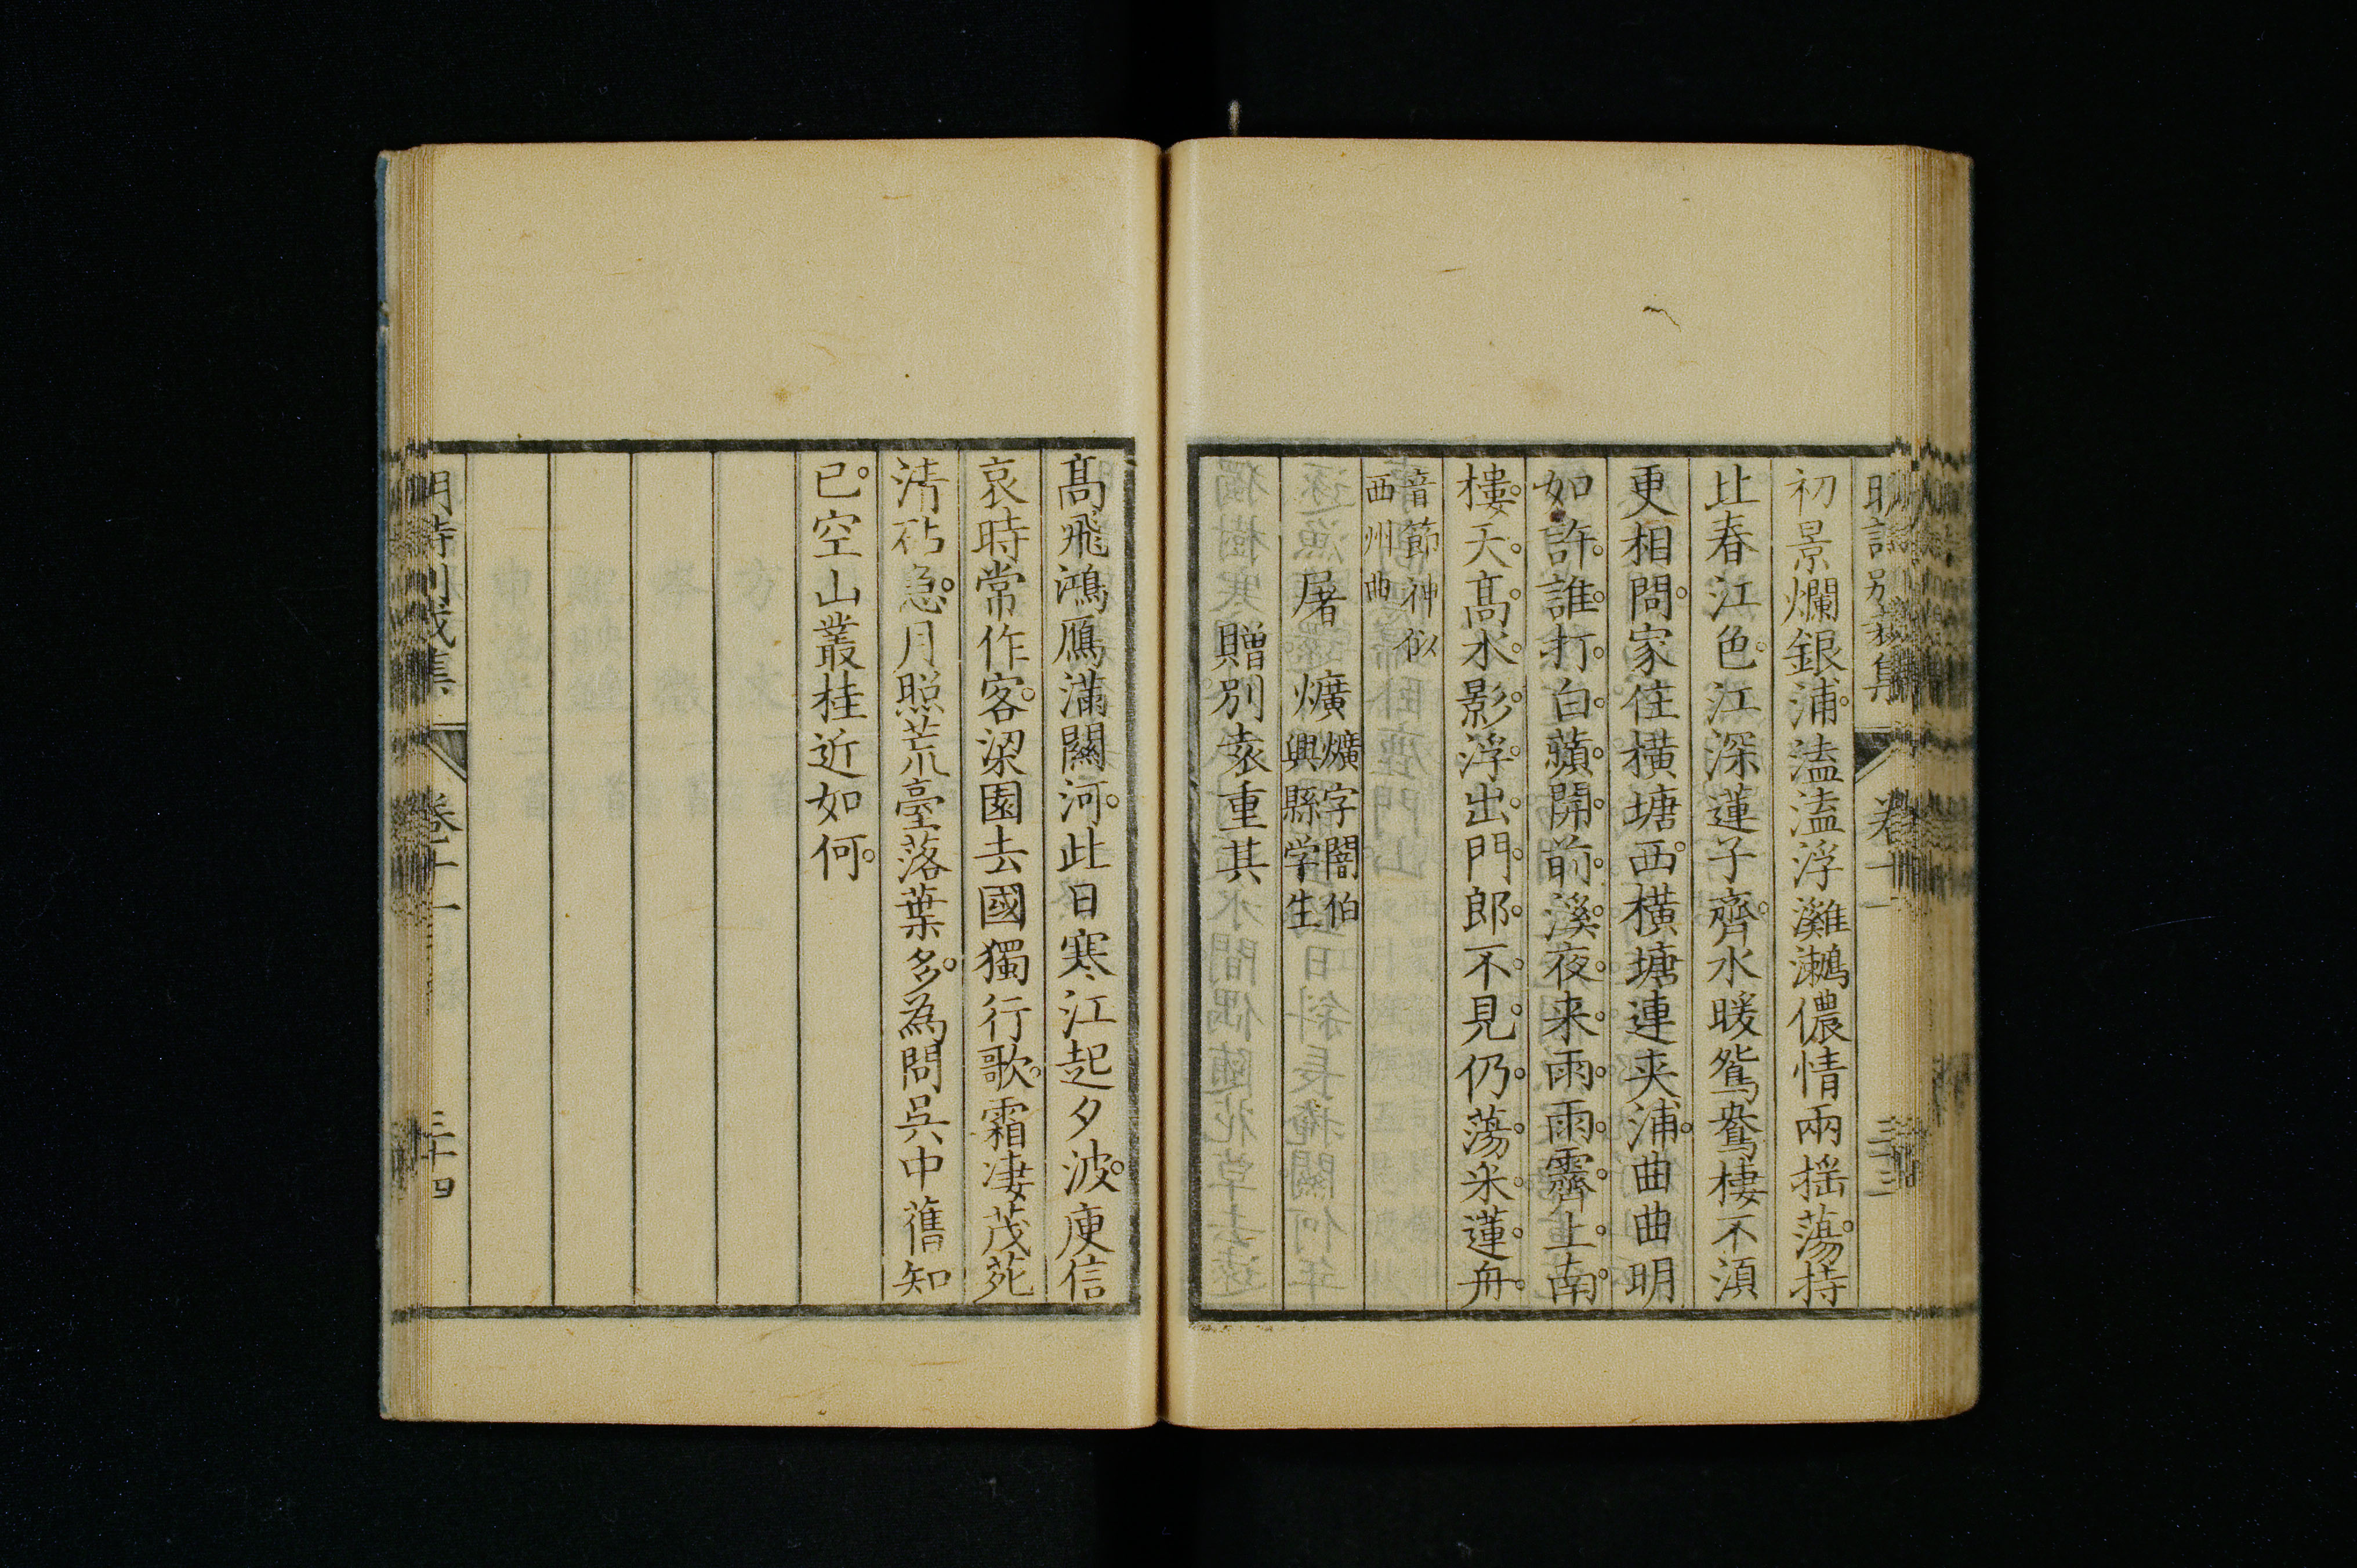 初景爛銀浦。溘溘浮灘鸂儂情兩揺蕩。持
比春江色。江深蓮子齊。水暖鴛鴦棲不須
更相問。家住橫塘西。橫塘連夾浦。曲曲明
如許。誰。打。白。蘋。開。前。溪。夜。来。雨。雨。霽。上。南。
樓。天。髙。水。影。浮。出。門。郎。不。見。仍。蕩。采。蓮。舟。
音節神似
西州曲
屠爌
爌字闇伯
興縣学生
贈別袁重其
髙飛鴻鴈滿關河。此日寒江起夕波。庾信
哀時常作客。梁園去國獨行歌。霜凄茂苑
淸砧急。月照荒臺落葉多。為問吳中舊知
已。空山叢桂近如何。
卷十一
三十四